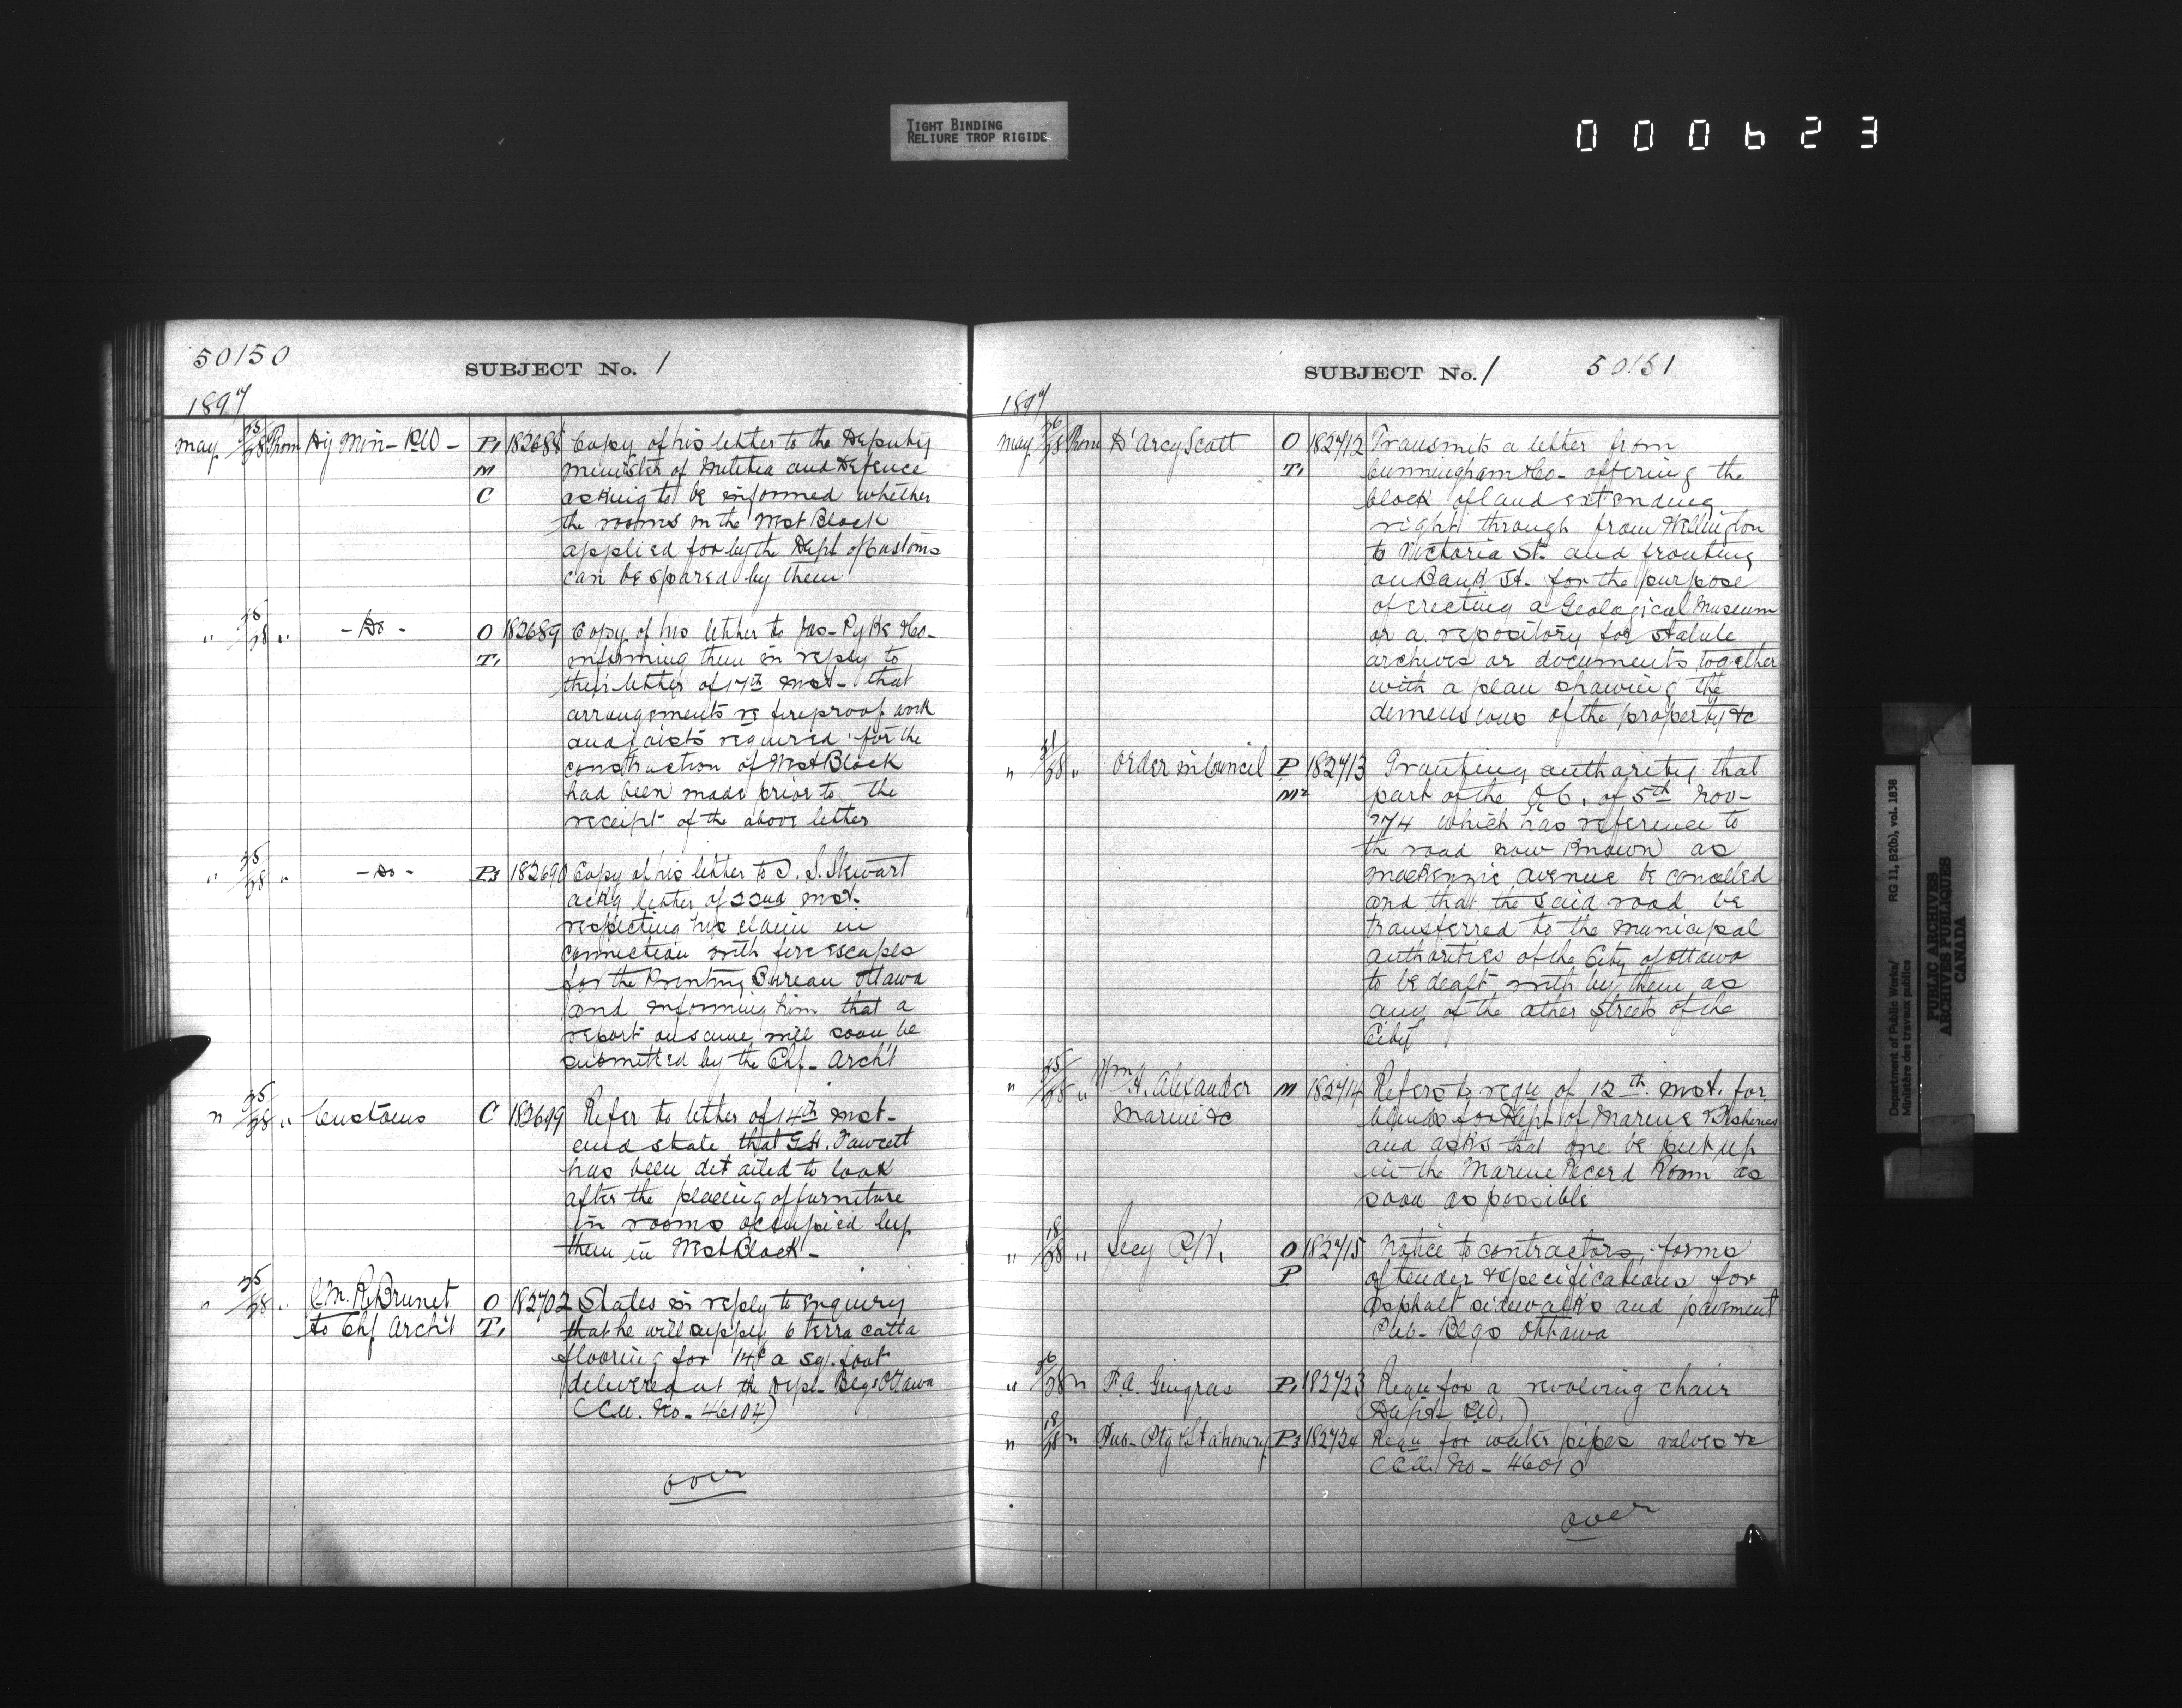 TIGHT BINDING
RELIURE TROP RIGIDE
000623
50150
SUBJECT No. 1
1897
May 25/28 From Dy Min - P.W - P1 182688 Copy of his letter to the Deputy
M Minister of Militia and Defence
C asking to be informed whether
the rooms in the West Block
applied for by the Dept of Customs
can be spared by them
" 25/28 " - Do - O 182689 Copy of his letter to Jas- Pyke & Co-
T1 informing them in reply to
their letter of 17th inst- that
arrangements re fireproof work
and joists required for the
construction of West Block
had been made prior to the
receipt of the above letter
" 25/28 " - Do - P3 182690 Copy of his letter to J. S. Stewart
ackg letter of 22nd inst.
respecting his claim in
connection with fire escapes
for the Printing Bureau Ottawa
and informing him that a
report on same will soon be
submitted by the Chf- Archt
" 25/28 " Customs C 182699 Refer to letter of 14th inst-
and state that G.H. Fawcett
has been detailed to look
after the placing of furniture
in rooms occupied by
them in West Block -
" 25/28 " C.M.R. Brunet O 182702 States in reply to enquiry
to Chf Archt T1 that he will supply 6 terra catta
flooring for 14¢ a sq. foot
delivered at the Dept- Blgs Ottawa
(Cll. No- 46104)
over
SUBJECT No. 1
50151
1897
May 26/28 From D'Arcy Scott O 182712 Transmits a letter from
T1 Cunningham & Co- offering the
block of land extending
right through from Wellington
to Victoria St. and fronting
on Bank St. for the purpose
of erecting a Geological Museum
or a repository for statute
archives or documents together
with a plan shawing the
demensions of the property &c
" 21/28 " Order in Council P 182713 Granting authority that
M2 part of the O.C. of 5th Nov-
'74 which has reference to
the road now known as
Mackenzie Avenue be cancelled
and that the said road be
transferred to the Municipal
authorities of the City of Ottawa
to be dealt with by them as
any of the other Streets of the
City
" 25/28 " Wm H. Alexander M 182714 Refers to requ of 12th inst. for
Marine &c blinds for Dept of Marine & Fisheries
and asks that one be put up
in the Marine Record Room as
soon as possible
" 18/28 " Secy P.W. O 182715 Notice to contractors, forms
P of tender & specifications for
asphalt sidewalks and pavement
Pub- Blgs Ottawa
" 26/28 " F.A. Gingras P1 182723 Requ for a revolving chair
(Dept P.W.)
" 18/28 " Pub- Ptg & Stationery P3 182724 Requ for water pipes valves &c
CCll. No- 46010
over
Department of Public Works/
Ministère des travaux publics
RG 11, B2(b), vol. 1838
PUBLIC ARCHIVES
ARCHIVES PUBLIQUES
CANADA